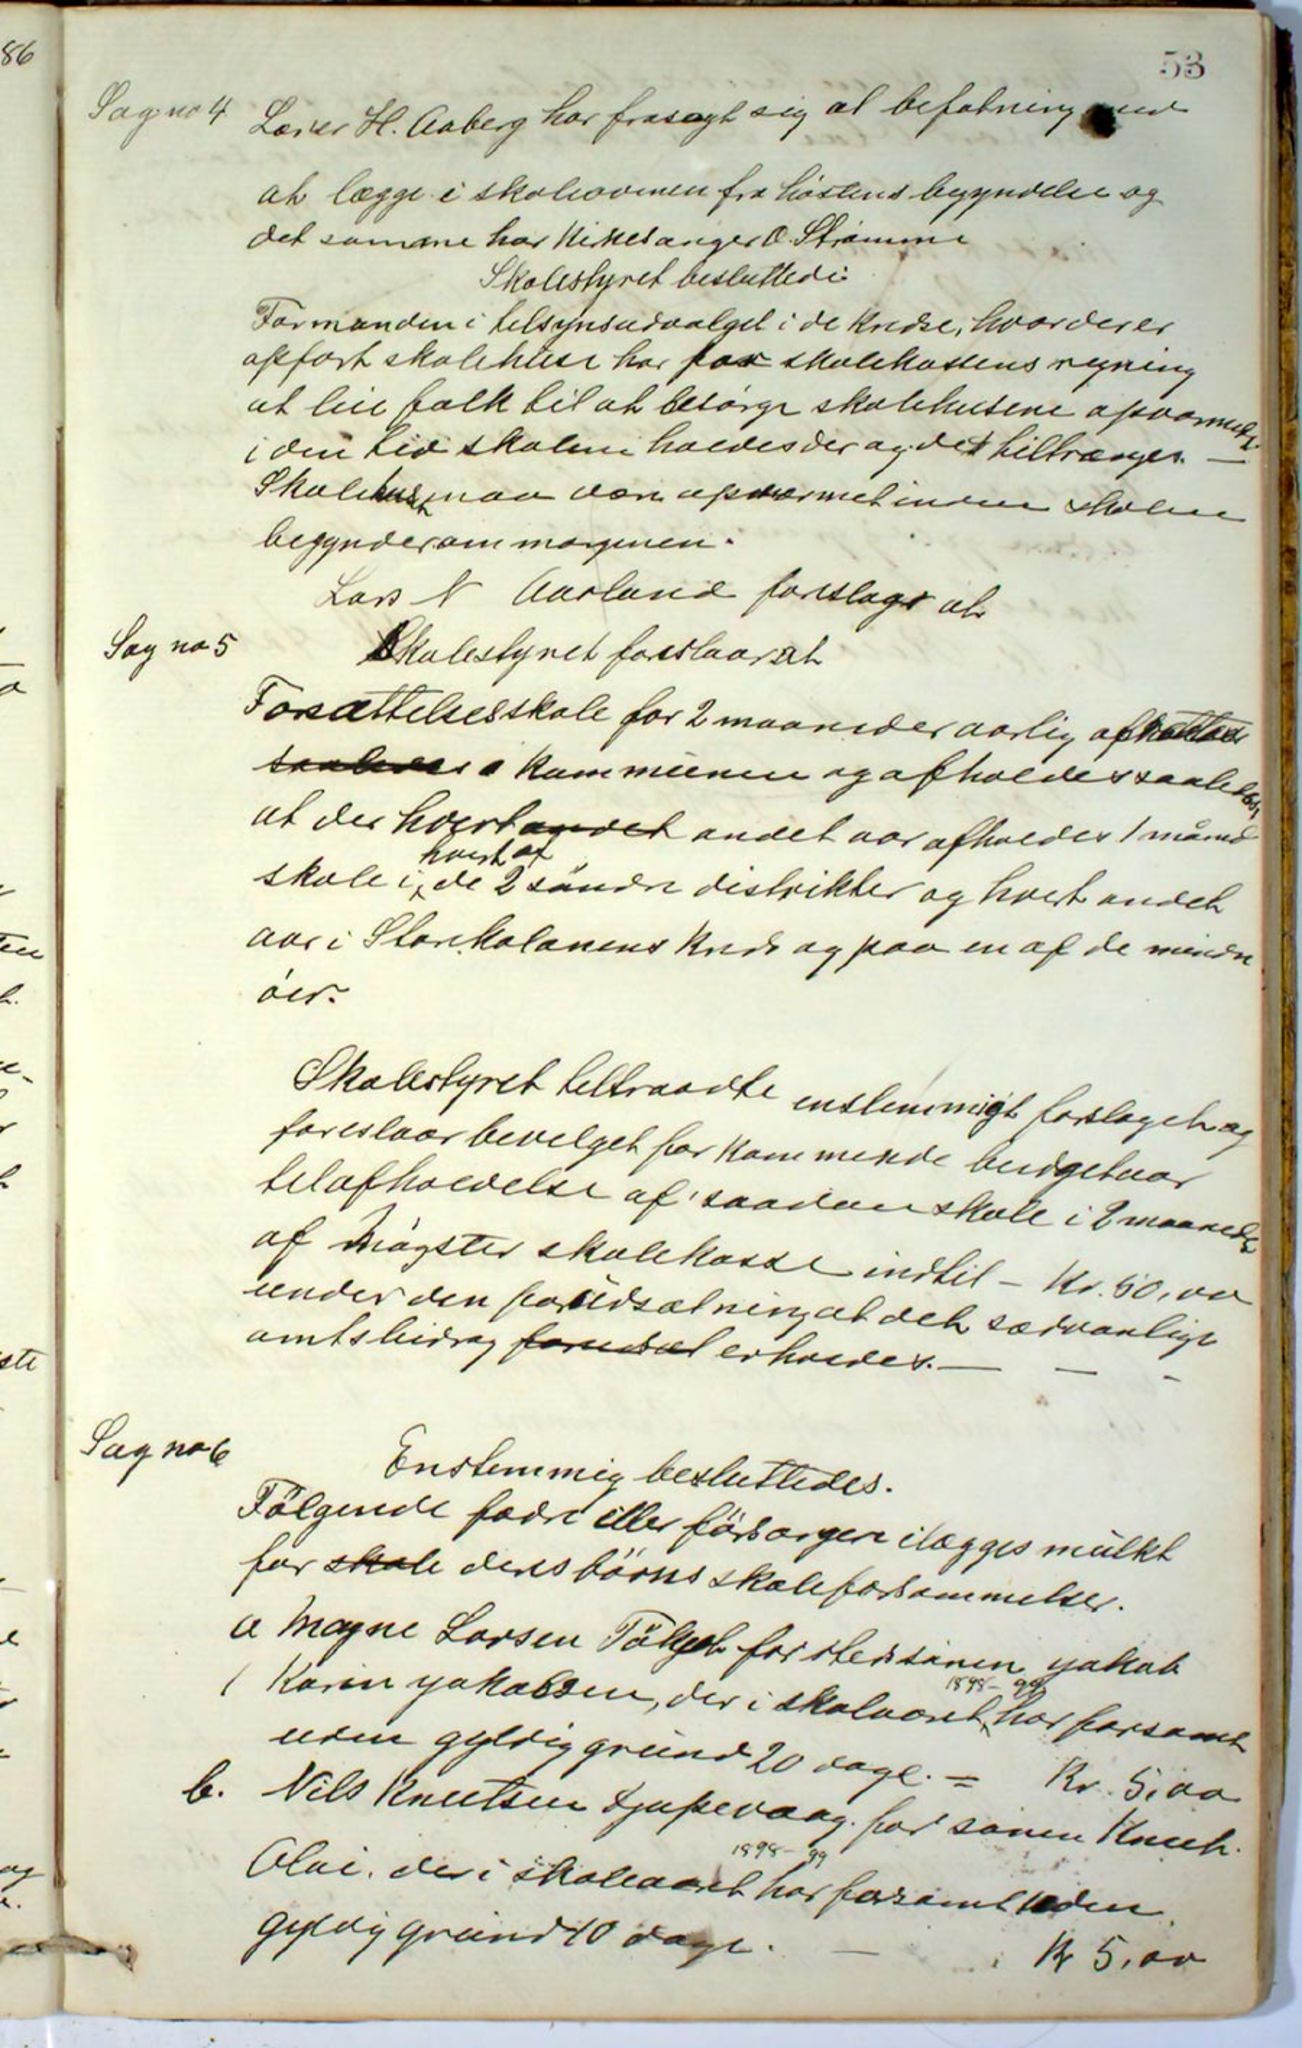 86
53
Sag no 4
Lærer H. Aaberg har frasagt sig al befatning med
at lægge i skoleovnen fra høstens begyndelse og
det samme har Kirkesanger O. Strømme
Skolestyret besluttede:
Formanden i tilsynsudvalget i de Kredse, hvor der er
opført skolehuse har for skolekassens regning
at leie folk til at besørge skolehusene opvarmede
i den tid skolen holdes der og det tiltrænges. —
Skolehuset maa være opvarmet inden skolen
begynder om morgenen.
Lars N Aarland foreslage at
Sag no 5
Skolestyret foreslaar at
Forsættelsesskole for 2 maaneder aarlig afholdes
saaledes i Kommunen og afholdes saaledes
at der hvert andet andet aar afholdes 1 måned
hvert af
skole i de 2 søndre distrikter og hvert andet
aar i Storekalsøens Kreds og paa en af de mindre
øer.
Skolestyret tiltraadte enstemmigt forslaget og
foreslaar bevilget for kommende budgetaar
til afholdelse af saadan skole i 2 maaneder
af Møgster skolekasse indtil – Kr. 50,00
under den forudsætning at det sædvanlige
amtsbidrag forudsat erholdes. — — -
Sag no 6
Enstemmig besluttedes.
Følgende fædre eller forsørgere ilægges mulkt
for skole deres børns skoleforsømmelser.
a Magne Larsen for stedsønnen Jakob
1898–99
1 Karin Jakobsen, der i skoleaaret har forsømt
uden gyldig grund 20 dage. = Kr. 5,00
b. Nils Knutsen Djupevaag for sønen Knut
1898–99
Olai. der i skoleaaret har forsømt uden
gyldig grund 10 dage. — Kr 5,00